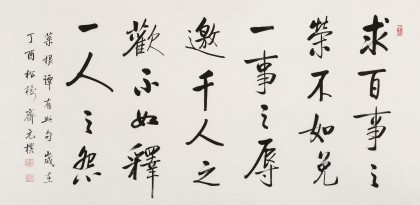 求百事之
榮不如免
一事之辱
邀千人之
歡不如釋
一人之怨
菜根譚有此句歲在
丁酉松樹齊元樸